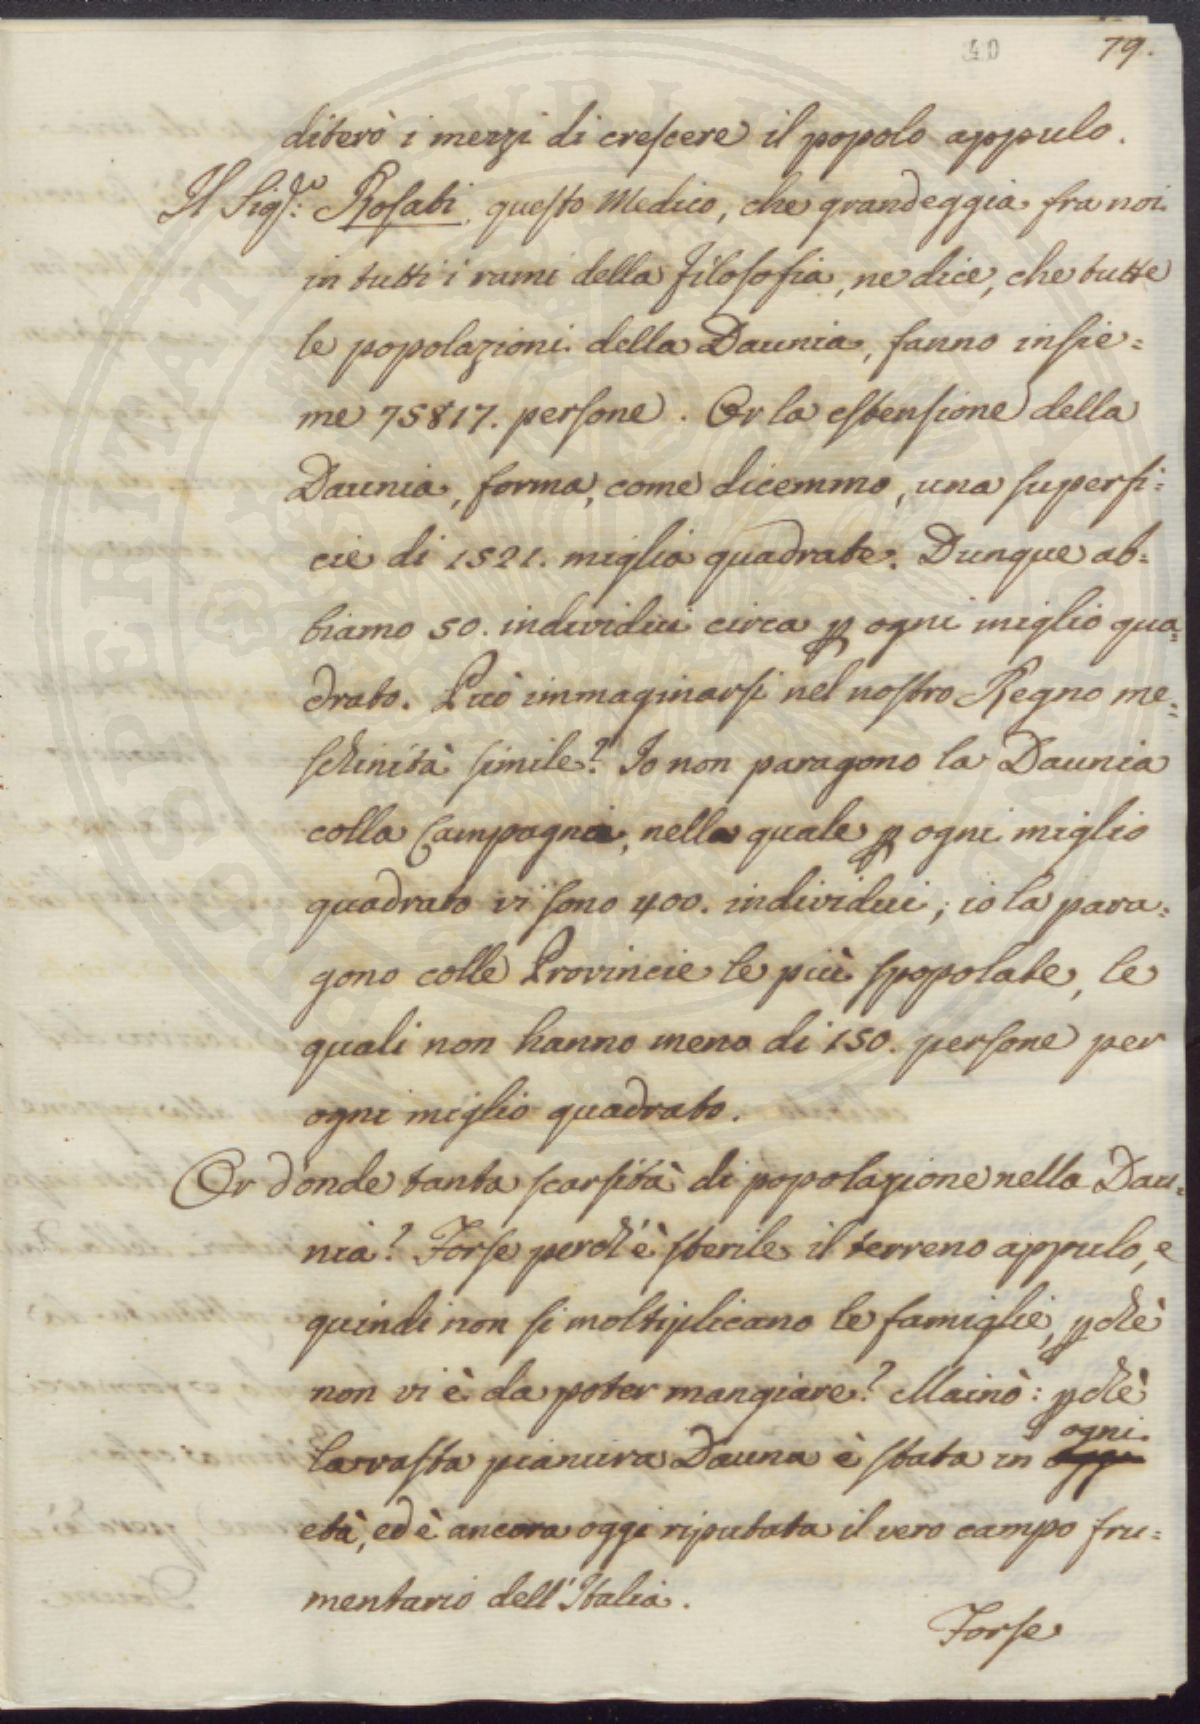 40 79.
diterò i mezzi di crescere il popolo appulo.
Il Sig.r Rosati, questo Medico, che grandeggia fra noi
in tutti i rami della filosofia, ne dice, che tutte
le popolazioni della Daunia, fanno insie=
me 75817. persone. Or la estensione della
Daunia, forma, come dicemmo, una superfi=
cie di 1521. miglia quadrate. Dunque ab=
biamo 50. individui circa p ogni miglio qua=
drato. Può immaginarsi nel nostro Regno me=
schinità simile? Io non paragono la Daunia
colla Campagna, nella quale p ogni miglio
quadrato vi sono 400. individui; io la para=
gono colle Provincie le più spopolate, le
quali non hanno meno di 150. persone per
ogni miglio quadrato.
Or donde tanta scarsità di popolazione nella Dau=
nia? Forse perch'è sterile il terreno appulo, e
quindi non si moltiplicano le famiglie, pchè
non vi è da poter mangiare? Mainò: pchè
la vasta pianura Dauna è stata in ogni
età, ed è ancora oggi riputata il vero campo fru=
mentario dell'Italia.
Forse
PROSPERITATI PUBLICAE